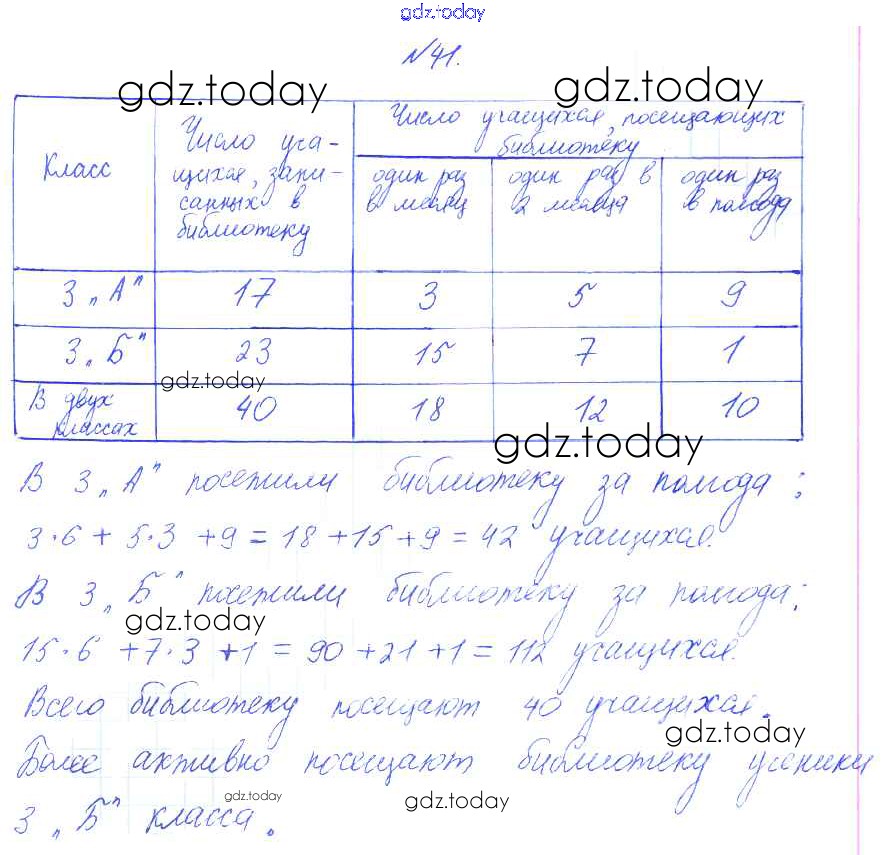 gdz.today
№41.
gdz.today gdz.today
Класс
Число уча-
щихся, запи-
санных в
библиотеку
Число учащихся, посещающих
библиотеку
один раз
в месяц
один раз в
2 месяца
один раз
в полгода
3 „А" 17 3 5 9
3 „Б" 23 15 7 1
gdz.today
В двух
классах
40 18 12 10
gdz.today
В 3 „А" посетили библиотеку за полгода:
3·6 + 5·3 + 9 = 18 + 15 + 9 = 42 учащихся.
В 3 „Б" посетили библиотеку за полгода:
gdz.today
15·6 + 7·3 + 1 = 90 + 21 + 1 = 112 учащихся.
Всего библиотеку посещают 40 учащихся.
gdz.today
Более активно посещают библиотеку ученики
gdz.today gdz.today
3 „Б" класса.